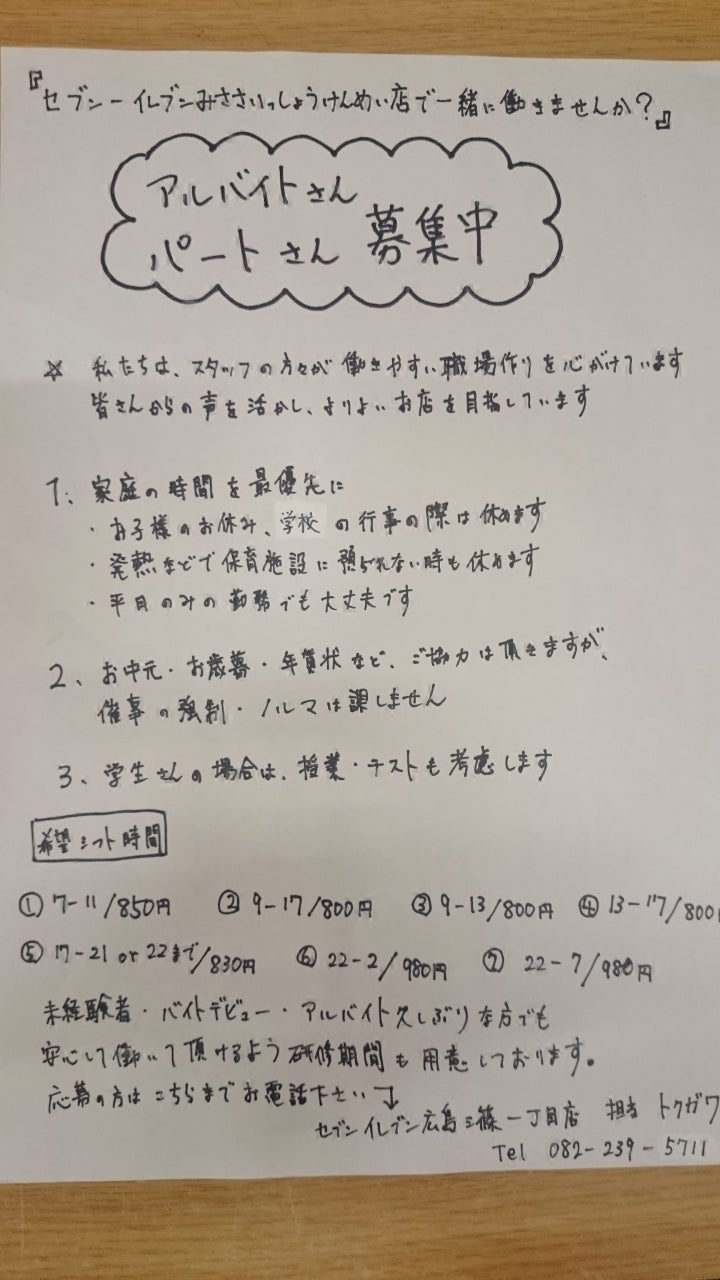 『セブンーイレブンみささいっしょうけんめい店で一緒に働きませんか?』
アルバイトさん
パートさん 募集中
☆ 私たちは、スタッフの方々が働きやすい職場作りを心がけています
皆さんからの声を活かし、よりよいお店を目指しています
1、家庭の時間を最優先に
・お子様のお休み、学校の行事の際は休めます
・発熱などで保育施設に預られない時も休めます
・平日のみの勤務でも大丈夫です
2、お中元・お歳暮・年賀状など、ご協力は頂きますが、
催事の強制・ノルマは課しません
3、学生さんの場合は、授業・テストも考慮します
希望シフト時間
① 7-11/850円 ② 9-17/800円 ③ 9-13/800円 ④ 13-17/800円
⑤ 17-21 or 22まで/830円 ⑥ 22-2/980円 ⑦ 22-7/980円
未経験者・バイトデビュー・アルバイト久しぶりな方でも
安心して働いて頂けるよう研修期間も用意しております。
応募の方はこちらまでお電話下さい
セブンイレブン広島三篠一丁目店 担当 トクガワ
Tel 082-239-5711